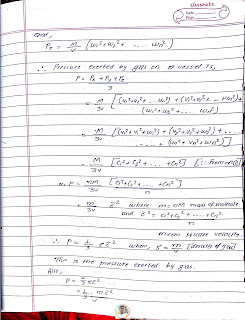 classmate
Date
Page
And,
Pz = M/V (w1² + w2² + ..... wn²)
∴ Pressure exerted by gas on vessel is,
P = Px + Py + Pz
3
= M/3V [(u1² + u2² + ... un²) + (v1² + v2² + ... vn²) +
(w1² + w2² + .... wn²)]
= M/3V [(u1² + v1² + w1²) + (u2² + v2² + w2²) + .....
..... + (un² + vn² + wn²)]
= M/3V [C1² + C2² + ..... + Cn²] [∵ From
or, P = nM/3V [C1² + C2² + .... + Cn²]
n
= m/3V c̄² where m = nM mass of molecule
and c̄² = C1² + C2² + .... + Cn²
n
mean square velocity.
∴ P = 1/3 ρc̄² where, ρ = m/V [density of gas]
This is the pressure exerted by gas.
Also,
P = 1/3 ρc̄²
= 1/3 m/V c̄²